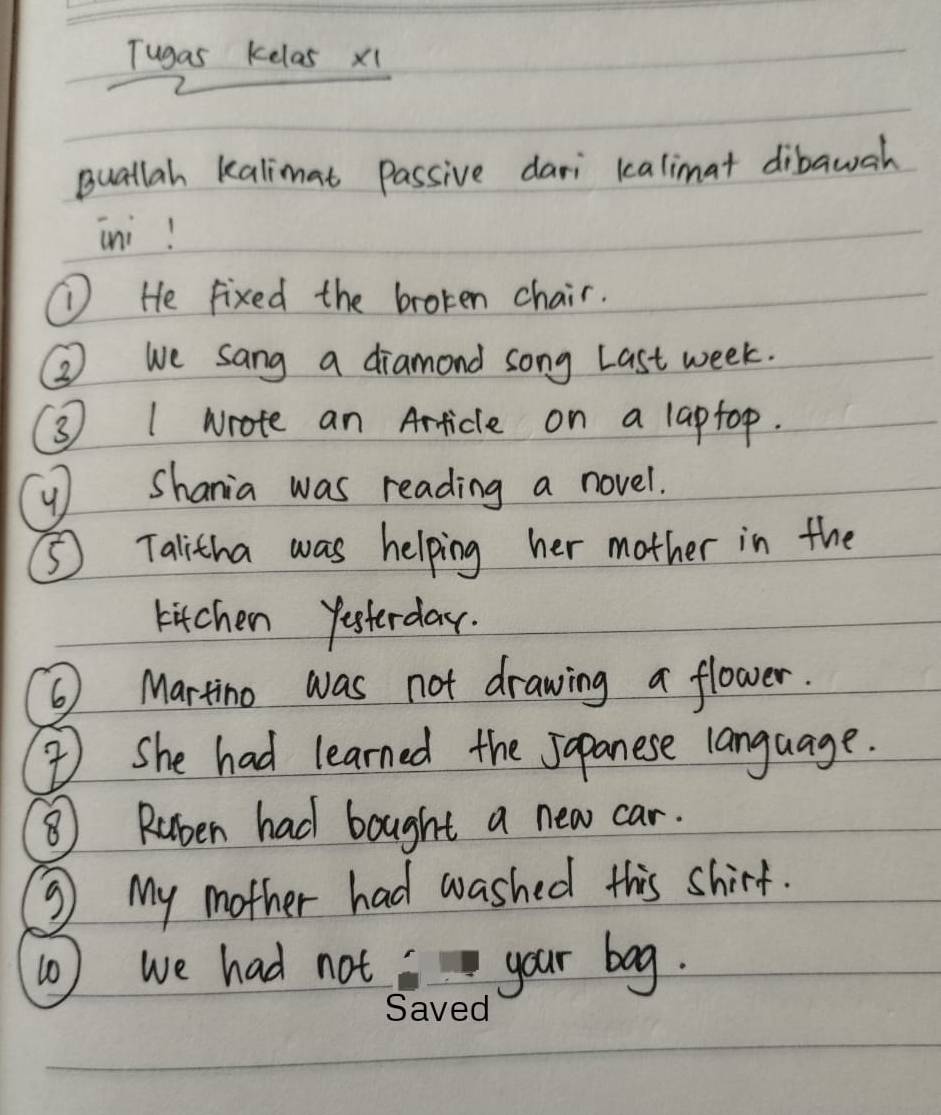 Tugas Kelas XI
Buatlah Kalimat Passive dari kalimat dibawah
ini !
1 He fixed the broken chair.
2 We sang a diamond song Last week.
3 I Wrote an Article on a laptop.
4 Shania was reading a novel.
5 Talitha was helping her mother in the
kitchen Yesterday.
6 Martino was not drawing a flower.
7 She had learned the Japanese language.
8 Ruben had bought a new car.
9 My mother had washed this shirt.
10 We had not your bag.
Saved